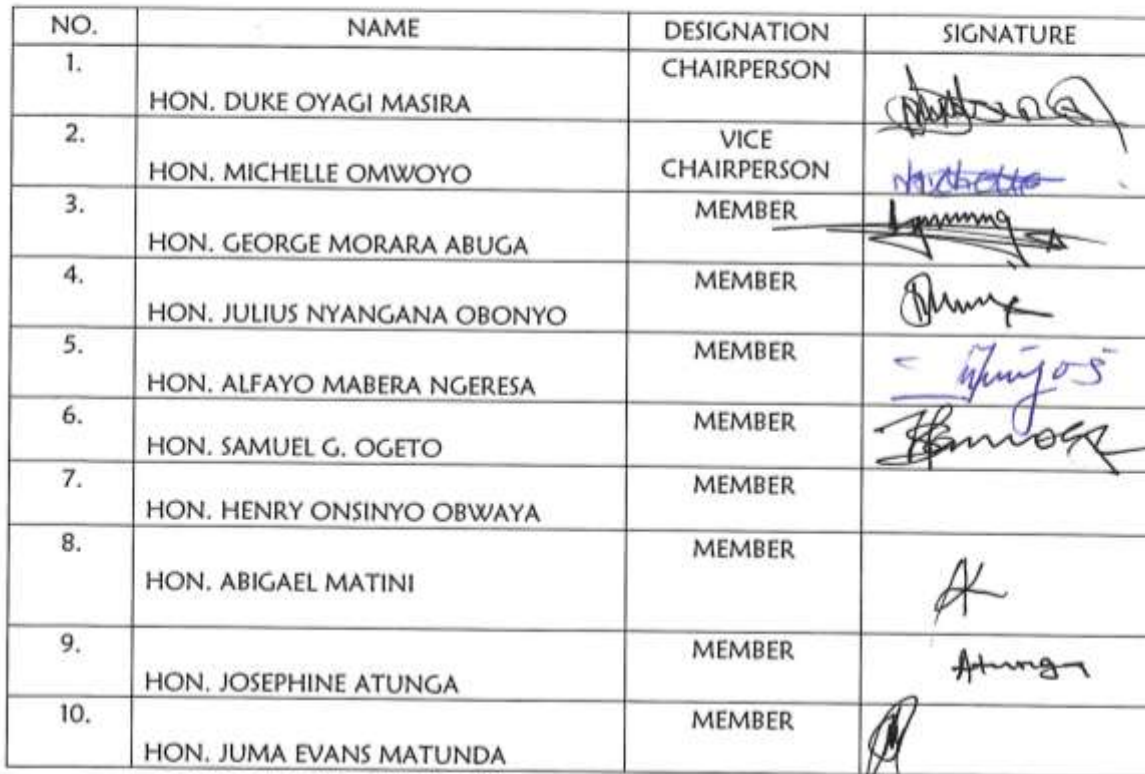 NO. NAME DESIGNATION SIGNATURE
1. HON. DUKE OYAGI MASIRA CHAIRPERSON
2. HON. MICHELLE OMWOYO VICE CHAIRPERSON Michelle
3. HON. GEORGE MORARA ABUGA MEMBER
4. HON. JULIUS NYANGANA OBONYO MEMBER
5. HON. ALFAYO MABERA NGERESA MEMBER
6. HON. SAMUEL G. OGETO MEMBER
7. HON. HENRY ONSINYO OBWAYA MEMBER
8. HON. ABIGAEL MATINI MEMBER
9. HON. JOSEPHINE ATUNGA MEMBER Atunga
10. HON. JUMA EVANS MATUNDA MEMBER